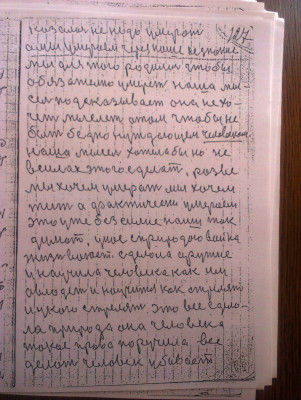 127
казалося не надо умерат
а мы умераем через наше незнание
мы для того родились чтобы
обязательно умерет наша мы
сел подсказывает она не хо
чет мыслет о том чтобы не
был бедно нуждающем человеком.
наша мысел хотела бы но не
в силах этого сделат, разве
мы хочем умерат мы хочем
жит а фрактически умераем
это уже бессилие наши так
думают, у нас с природою война
она
у научила человека как им
овладет и научит как стрелят
и у кого стрелят это все сдело
ла природа она человека
такое права поручила все
делат человек убивает